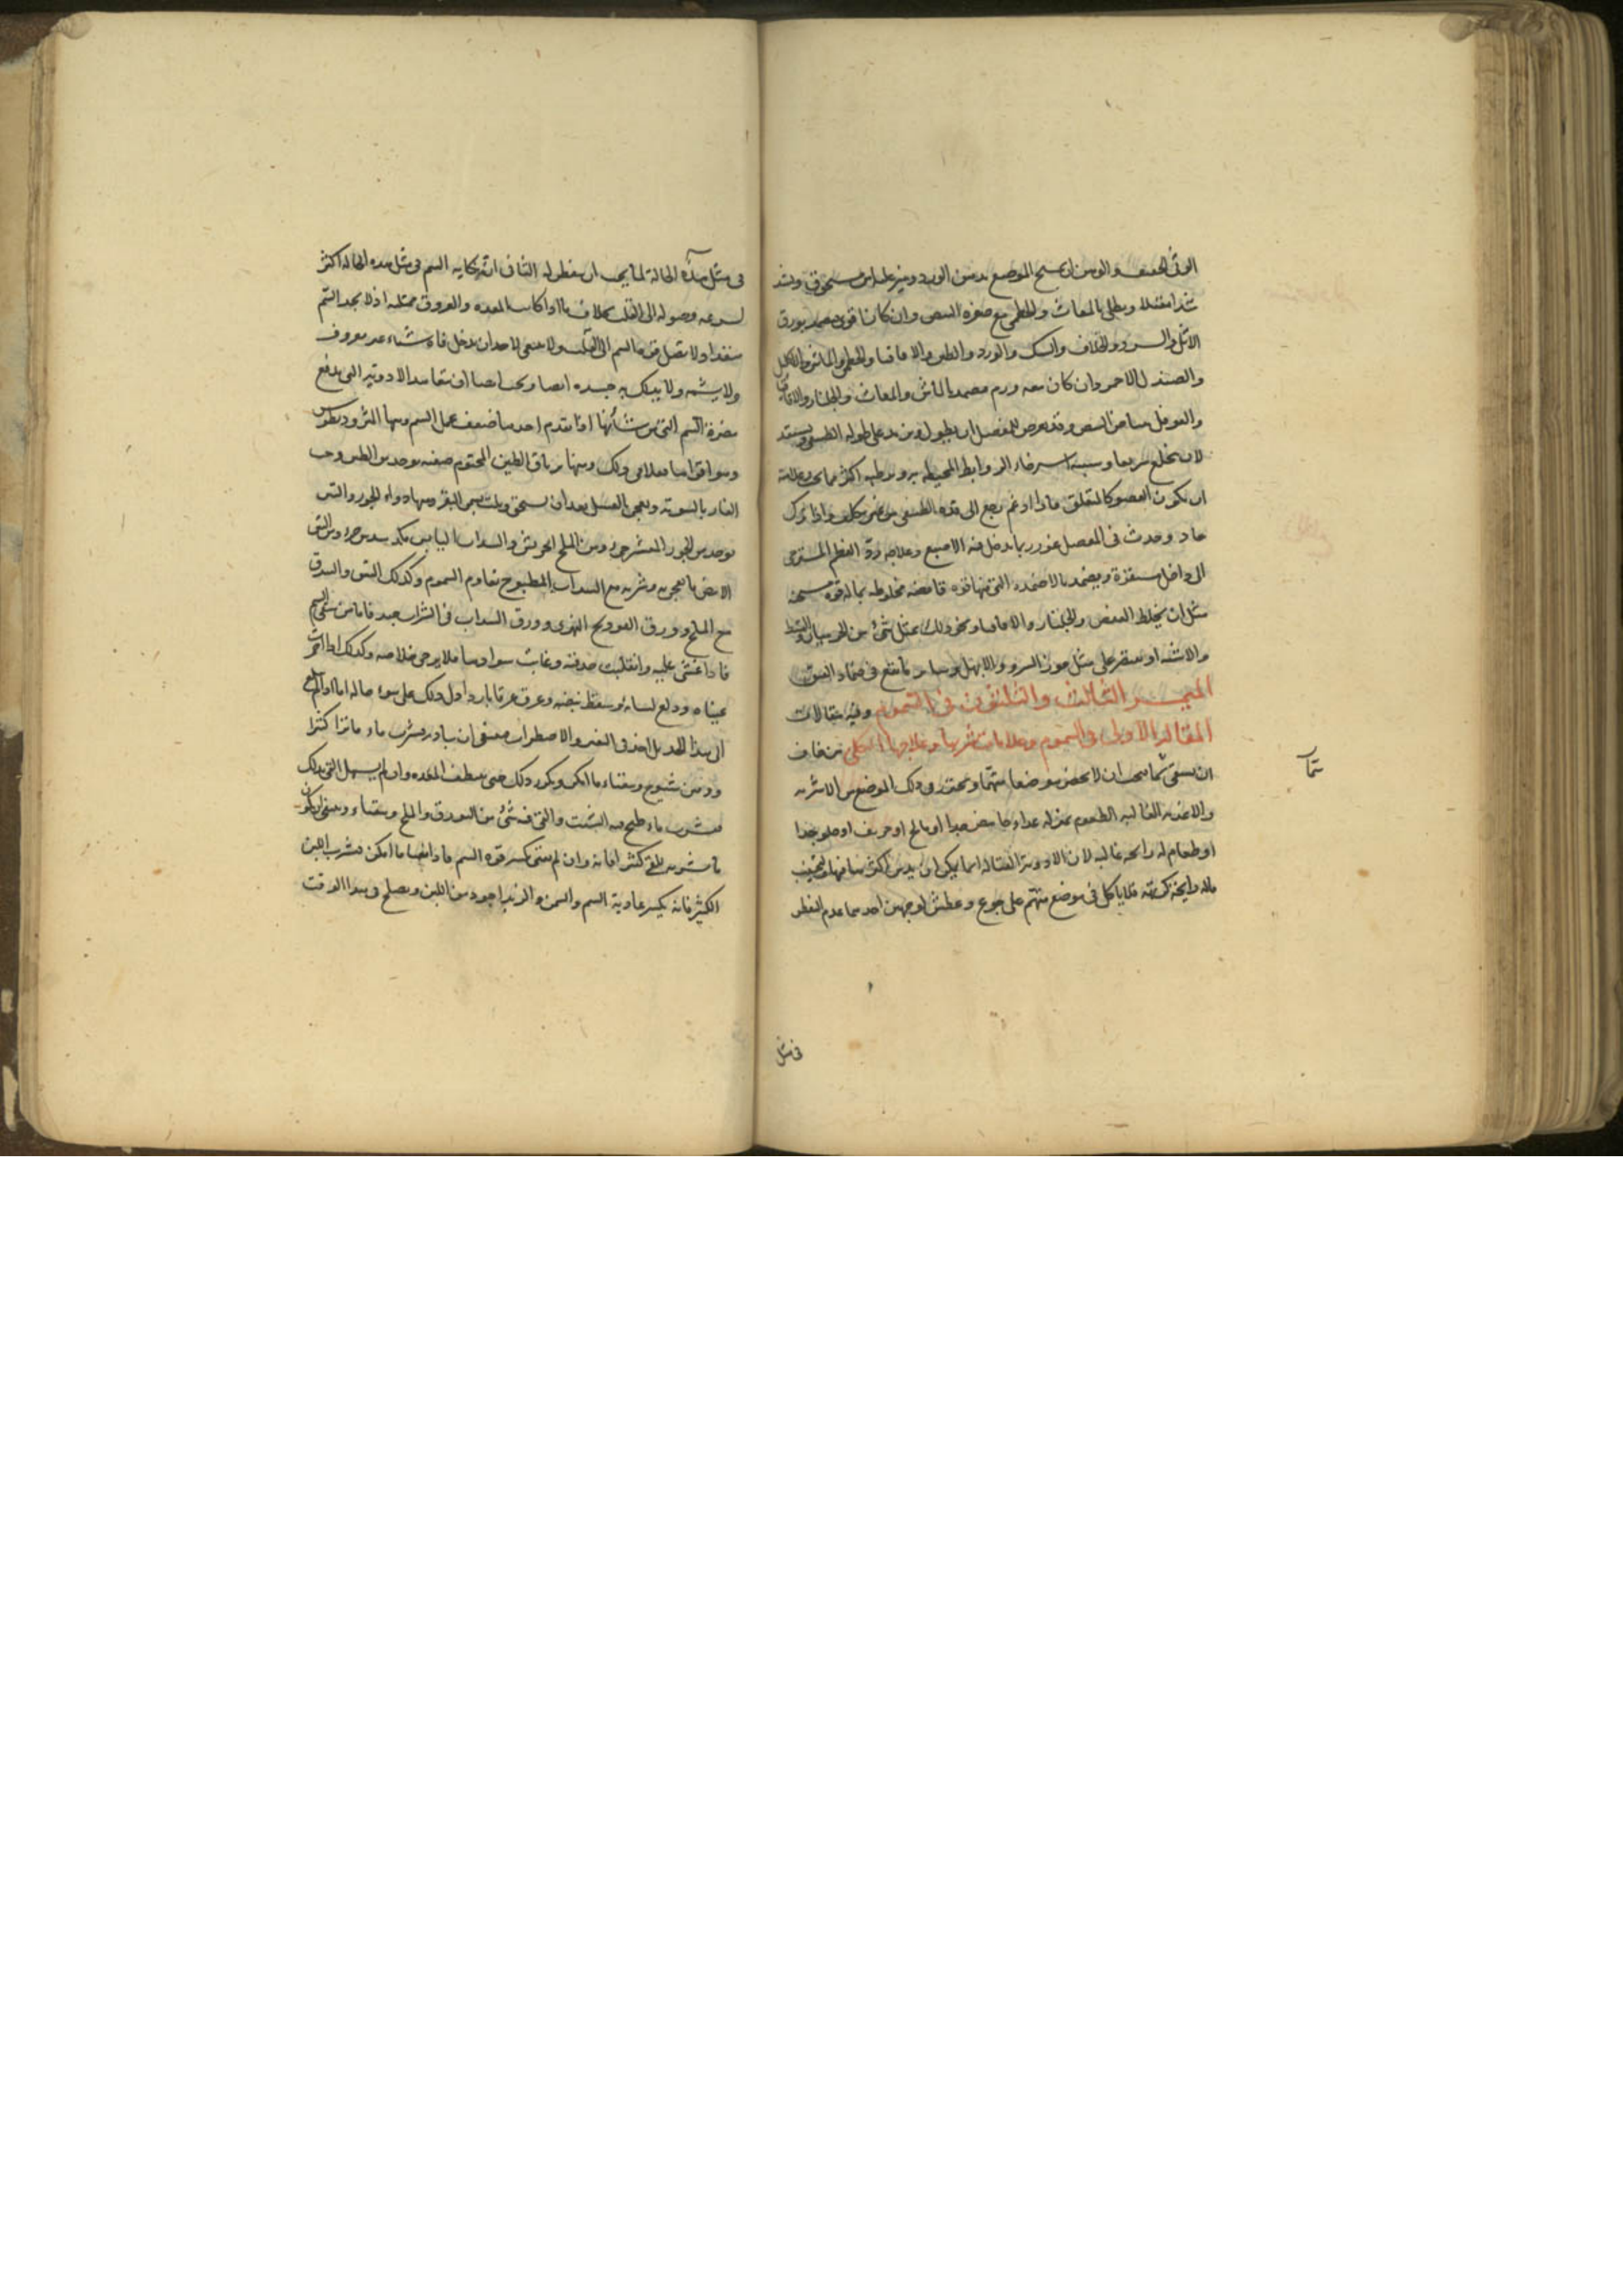 الوثى الضعيف والوهن ان يمسح الموضع بدهن الورد وينثر عليه اس مسحوق ويشد
شدا معتدلا ويطلى بالمغاث والخطمى مع صفرة البيض وان كانا قويين بورق
الاثل والسرو والخلاف والسك والورد والطين والاقاقيا والخطمى والماش والاكليل
والصندل الاحمر وان كان معه ورم بالماش والمغاث والجلنار والاقاقيا
والفوفل ببياض البيض وقد يعرض للمفصل ان يطول ويزيد على طوله الطبيعى ويستعد
لان يخلع سريعا وسببه استرخاء الروابط المحيطة به ورطوبة اكثر مما يجب وعلامته
ان يكون العضو كالمتعلق فاذا ادغم رجع الى قدره الطبيعى من غير تكلف واذا ترك
عاد وحدث فى المفصل غور ربما يدخل فيه الاصبع وعلاجه رد العظم المسترخى
الى داخل مستقره ويضمد بالاضمدة التى فيها قوة قابضة مخلوطة بما له قوة مسخنة
مثل ان يخلط العفص والجلنار والاقاقيا ونحو ذلك بمثل شئ من الجندبيدستر والقسط
والاشنة او يقتصر على مثل جوز السرو والابهل وسائر ما يقع فى ضماد الفتق
المبحث الثالث والثلثون فى السموم وفيه مقالات
المقالة الاولى فى السموم وعلامات شربها وعلاجها الكلى من خاف
ان يسقى سما يجب ان لا يحضر موضعا متهما ويحترز فى ذلك الموضع من الاشربة
والاغذية الغالبة الطعوم بمنزلة غذاء حامض جدا او مالح او حريف او حلو جدا
او طعام له رائحة غالبة لان الادوية القتالة انما يمكن ان يدس اكثرها فيها ويجتنب
ماله رائحة كريهة فلا ياكل فى موضع متهم على جوع وعطش لوجهين احدهما عدم النظر
سما
فى مثل
فى مثل هذه الحالة لما يجب ان يفطن له الثانى ان نكاية السم فى مثل هذه الحالة اكثر
لسرعة وصوله الى القلب بخلاف ما اذا كانت المعدة والعروق ممتلئة اذ لا يجد السم
منفذا ولا تصل قوة السم الى القلب ولا ينبغى لاحد ان يدخل فاه شيئا غير معروف
ولا يشمه ولا يمسك به جسده ايضا ويجب ايضا ان يتعاهد الادوية التى تدفع
مضرة السم التى من شأنها اذا تقدم اخذها ضعف عمل السم ومنها المثروديطوس
وهو اقواها فعلا فى ذلك ومنها ترياق الطين المختوم صفته يوخذ من الطين وحب
الغار بالسوية ويعجن بالعسل بعد ان يسحق ويلت بسمن البقر ومنها دواء الجوز والتين
يوخذ من الجوز المقشر جزء ومن الملح الجريش والسداب اليابس مكد سدس جزء ومن التين
الابيض ما يعجن به وشربه مع السداب المطبوخ يقاوم السموم وكذلك التين والبندق
مع الملح وورق الفودنج النهرى وورق السداب فى الشراب جيد فاما من سقى السم
فاذا غشى عليه وانقلبت حدقته وغاب سوادها فلا يرجى خلاصه وكذلك اذا احمرت
عيناه ودلع لسانه وسقط نبضه وعرق عرقا باردا دل ذلك على سوء حاله اما اذا لم يبلغ
الى هذا الحد بل اخذ فى التغير والاضطراب فينبغى ان يبادر ويشرب ماء فاترا كثيرا
ودهن شيرج ويتقياء ما امكن ويكرر ذلك حتى ينظف المعدة وان لم يسهل القئ بذلك
فيشرب ماء طبخ فيه الشبت والقى فيه شئ من البورق والملح ويتقياء وينبغى ان يكون
ما يشربه للقئ كثيرا فانه وان لم يقئ كسر قوة السم فاذا تقيا ما امكن فيشرب اللبن
الكثير فانه يكسر عادية السم والسمن والزبد اجود من اللبن ويصلح فى هذا الوقت